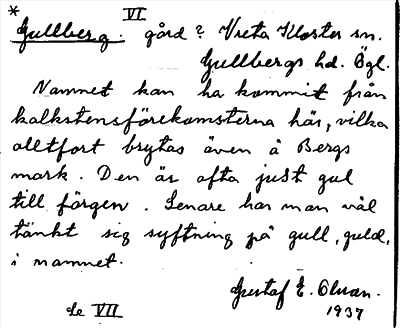 VI
* Gullberg. gård? Vreta Kloster sn.
Gullbergs hd. Ögl.
Namnet kan ha kommit från
kalkstensförekomsterna här, vilka
alltfort brytas även å Bergs
mark. Den är ofta just gul
till färgen. Senare har man väl
tänkt sig syftning på gull, guld,
i namnet.
Gustaf E. Olsson.
1937
de VII